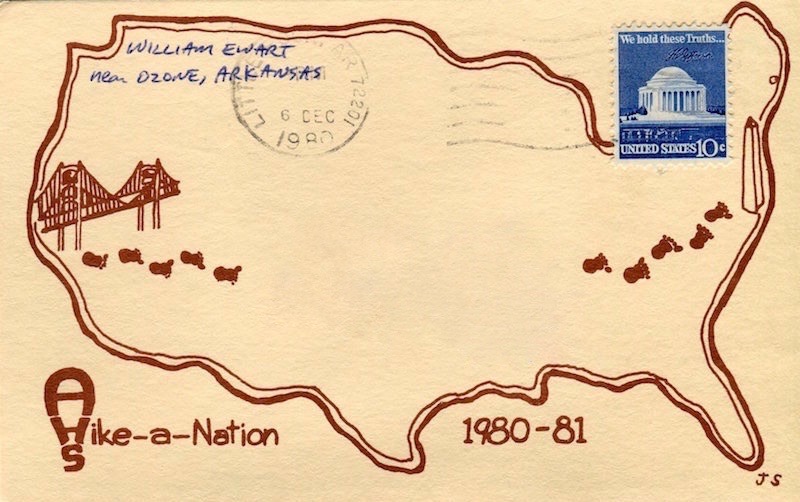 WILLIAM EWART
near OZONE, ARKANSAS
LITTLE AR 72201
6 DEC
1980
We hold these Truths...
UNITED STATES 10c
AHS
Hike-a-Nation
1980-81
JS